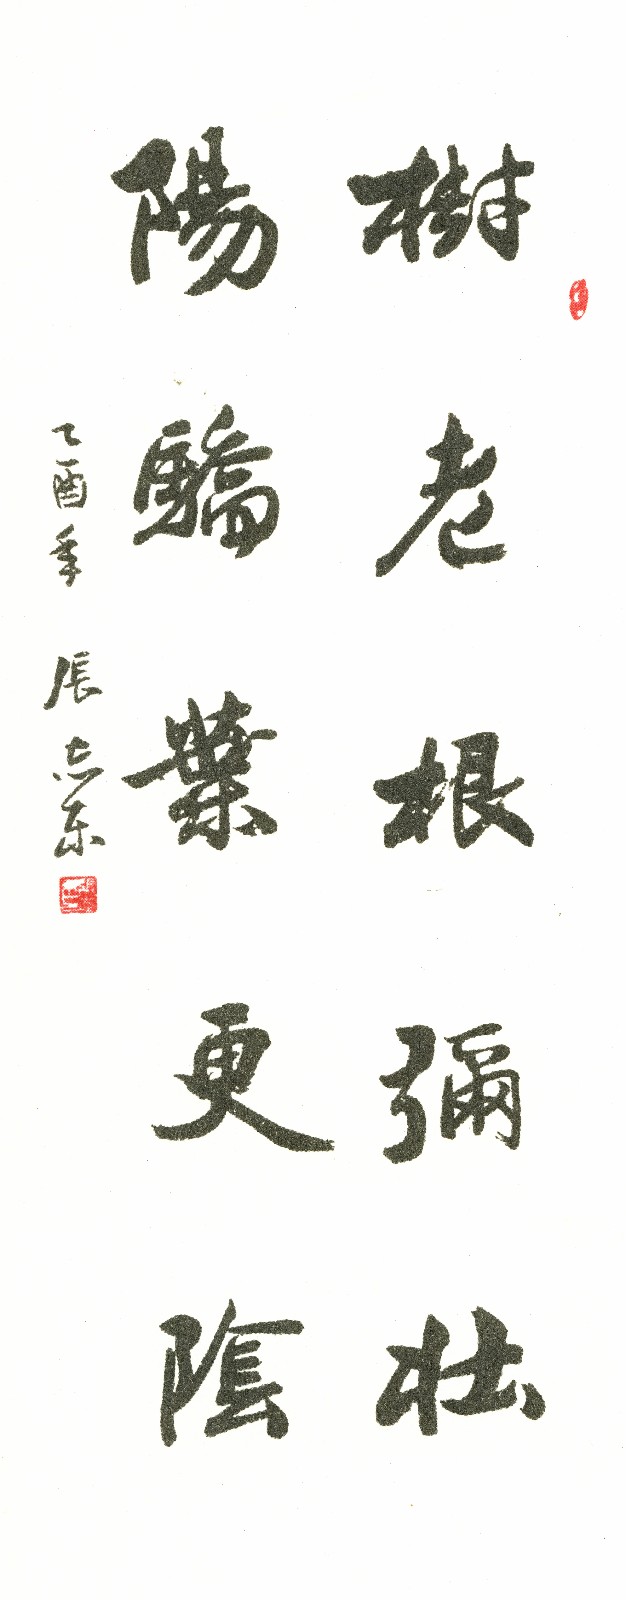 樹老根彌壯
陽驕葉更陰
乙酉年 張志東